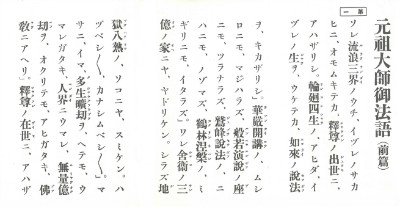 第一
元祖大師御法語(前篇)
ソレ流浪三界ノウチ、イヅレノサカ
ヒニ、オモムキテカ、釋尊ノ出世ニ、
アハザリシ。輪廻四生ノ、アヒダ、イ
ヅレノ生ヲ、ウケテカ、如來ノ說法
ヲ、キカザリシ。華嚴開講ノ、ムシ
ロニモ、マジハラズ。般若演說ノ、座
ニモ、ツラナラズ。鷲峰說法ノ、ニ
ハニモ、ノゾマズ。鶴林涅槃ノ、ミ
ギリニモ、イタラズ。ワレ舍衛ノ三
億ノ家ニヤ、ヤドリケン。シラズ地
獄八熱ノ、ソコニヤ、スミケン。ハ
ヅベシ〱。カナシムベシ〱。マ
サニ、イマ、多生曠劫ヲ、ヘテモ、ウ
マレガタキ、人界ニウマレ、無量億
劫ヲ、オクリテモ、アヒガタキ、佛
敎ニアヘリ。釋尊ノ在世ニ、アハザ